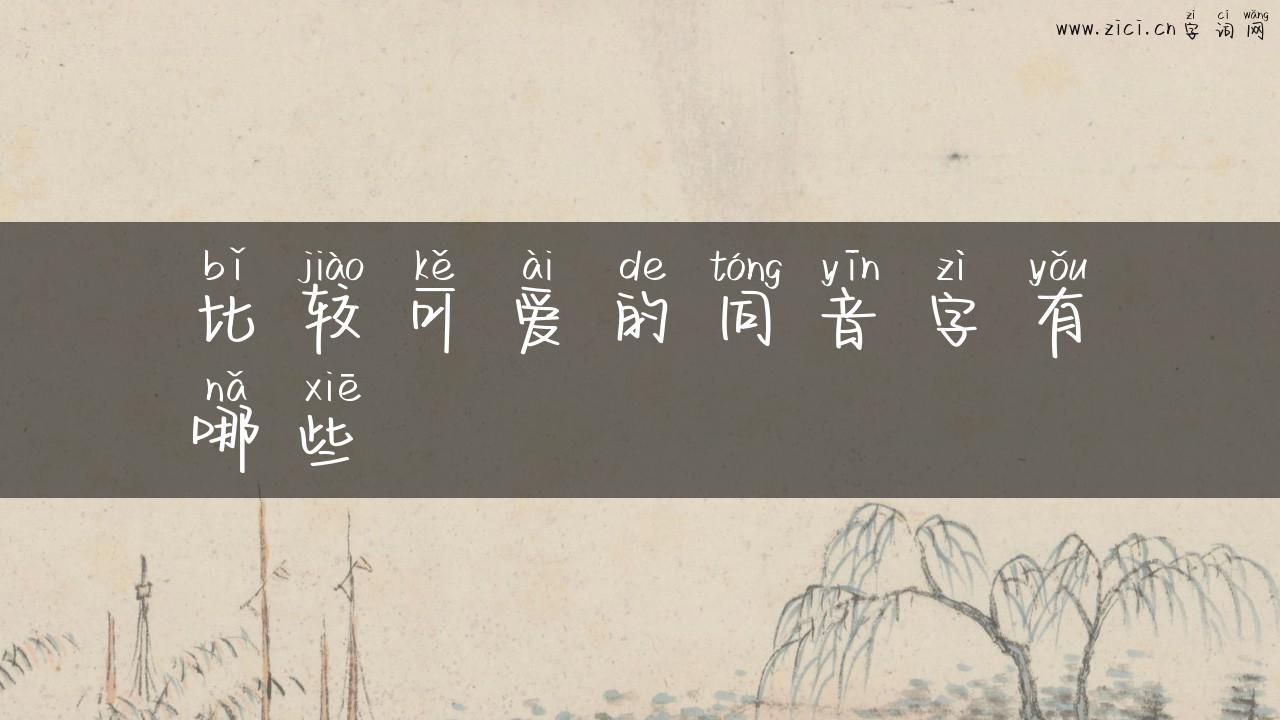 zì cí wǎng
www.zici.cn 字词网
bǐ jiào kě ài de tóng yīn zì yǒu
比较可爱的同音字有
nǎ xiē
哪些